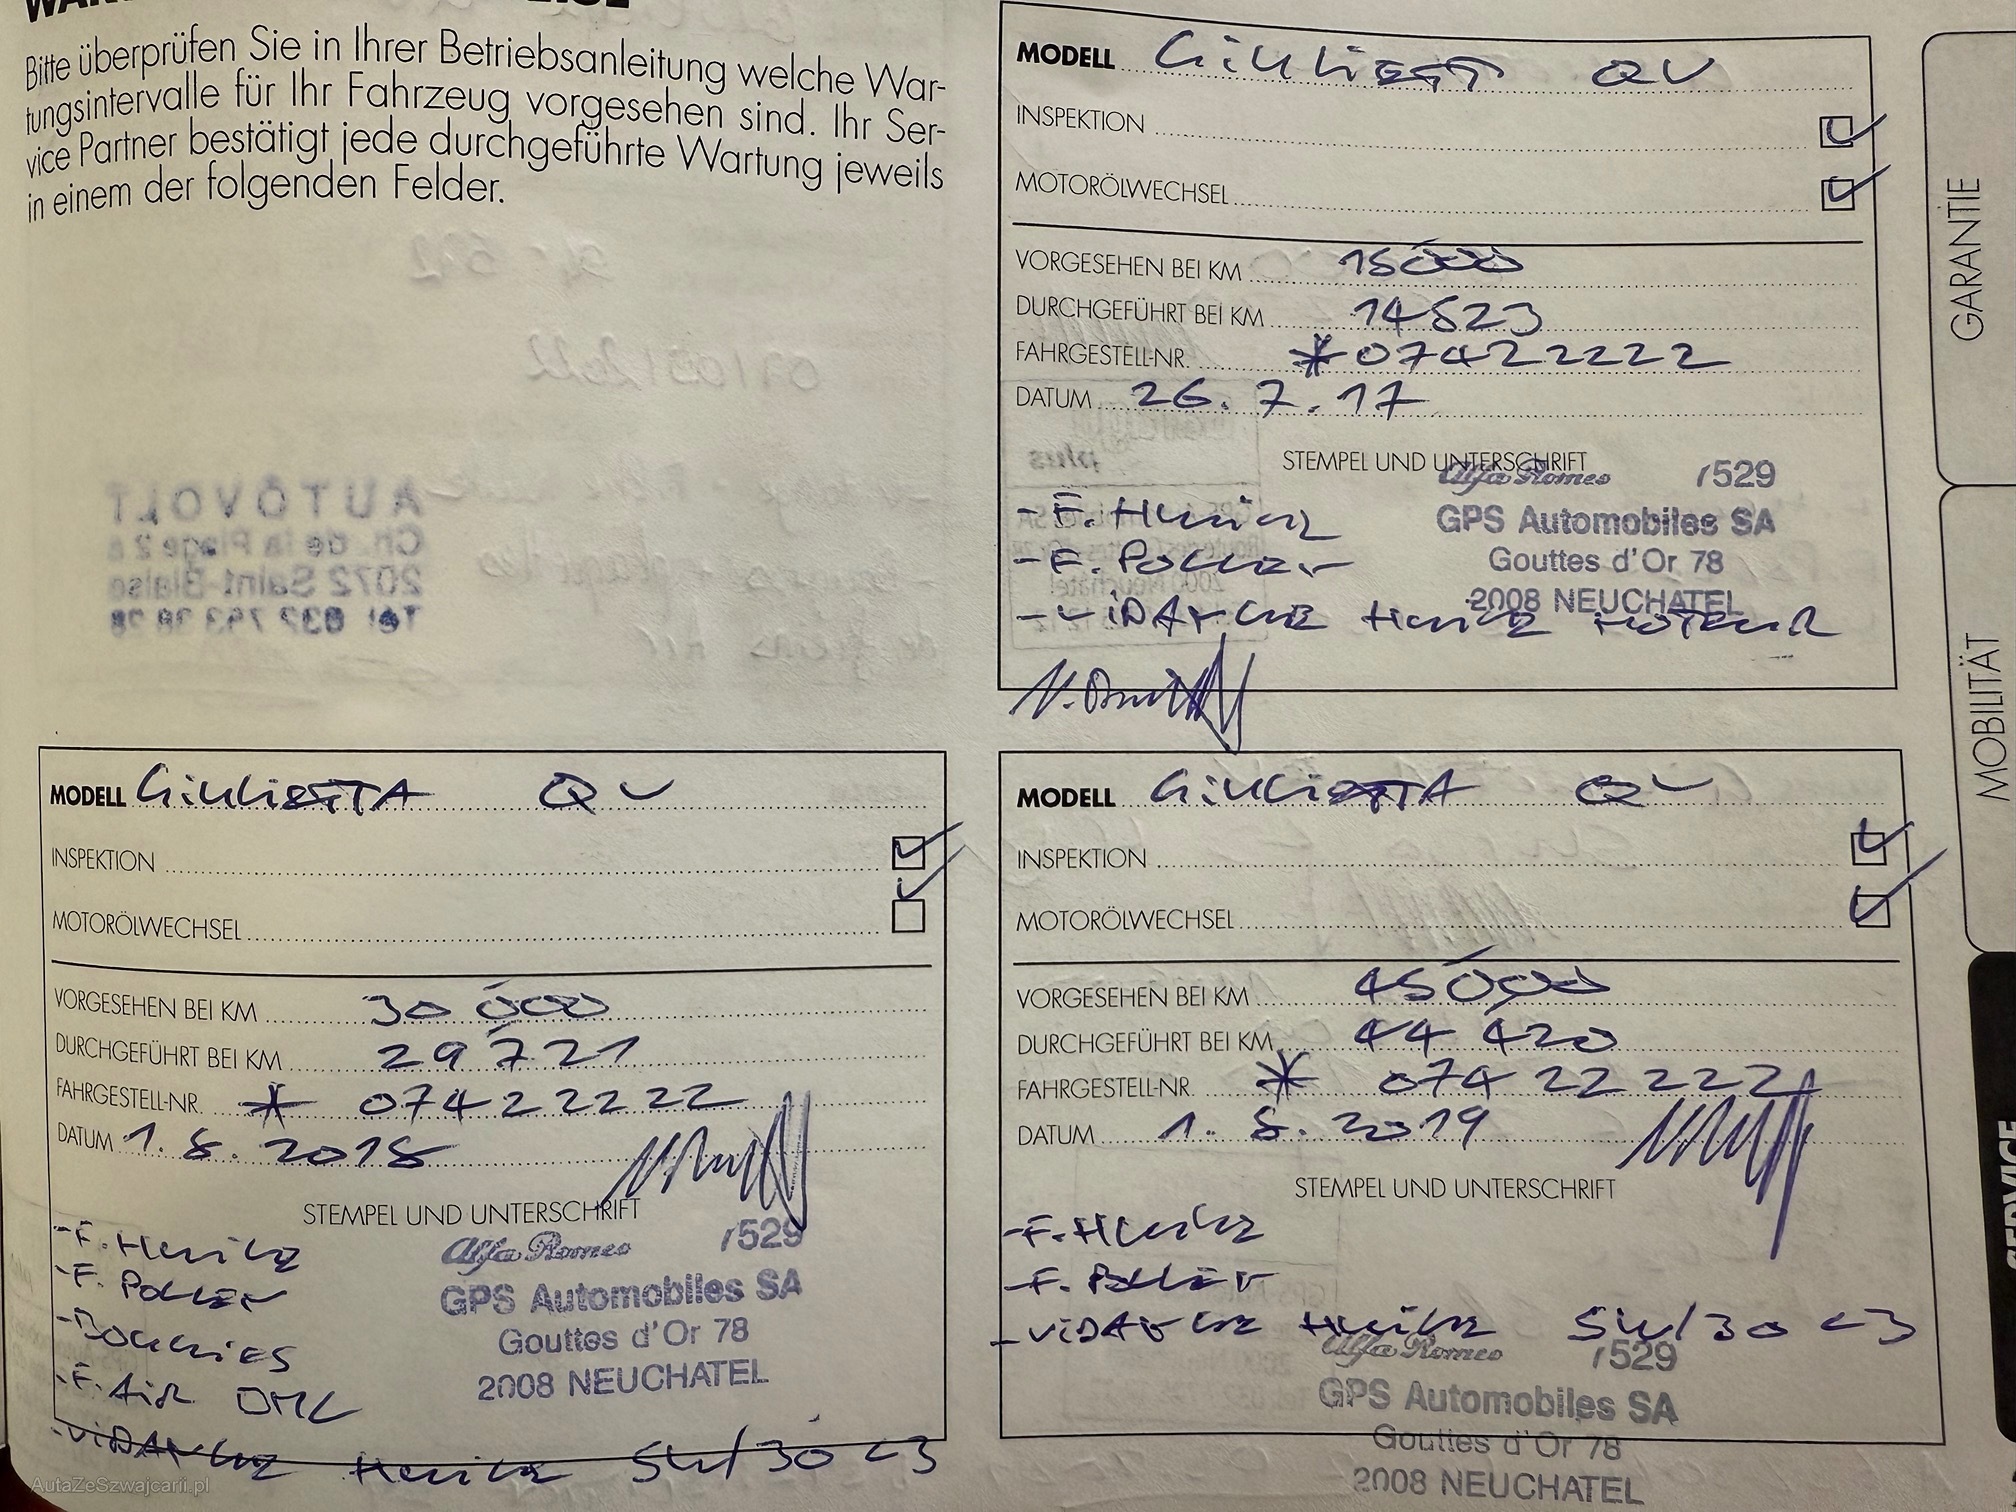 Bitte überprüfen Sie in Ihrer Betriebsanleitung welche War-
tungsintervalle für Ihr Fahrzeug vorgesehen sind. Ihr Ser-
vice Partner bestätigt jede durchgeführte Wartung jeweils
in einem der folgenden Felder.
AUTOVOLT
Ch. de la Plage 2a
2072 Saint-Blaise
Tel 032 753 38 28
MODELL GiuliETTA QV
INSPEKTION
MOTORÖLWECHSEL
VORGESEHEN BEI KM 15'000
DURCHGEFÜHRT BEI KM 14523
FAHRGESTELL-NR. *07422222
DATUM 26.7.17
STEMPEL UND UNTERSCHRIFT
Alfa Romeo 1529
GPS Automobiles SA
Gouttes d'Or 78
2008 NEUCHATEL
- F. Huile
- F. Pollen
- ViDANGE Huile MOTEUR
MODELL GiuliETTA QV
INSPEKTION
MOTORÖLWECHSEL
VORGESEHEN BEI KM 30'000
DURCHGEFÜHRT BEI KM 29'721
FAHRGESTELL-NR. * 07422222
DATUM 1.8.2018
STEMPEL UND UNTERSCHRIFT
Alfa Romeo 1529
GPS Automobiles SA
Gouttes d'Or 78
2008 NEUCHATEL
- F. Huile
- F. Pollen
- Bougies
- F. Air DMC
- ViDANGE Huile 5W/30 C3
MODELL GiuliETTA QV
INSPEKTION
MOTORÖLWECHSEL
VORGESEHEN BEI KM 45'000
DURCHGEFÜHRT BEI KM 44'420
FAHRGESTELL-NR. * 07422222
DATUM 1.8.2019
STEMPEL UND UNTERSCHRIFT
- F. Huile
- F. Pollen
- ViDANGE Huile 5W/30 C3
Alfa Romeo 1529
GPS Automobiles SA
Gouttes d'Or 78
2008 NEUCHATEL
GARANTIE
MOBILITÄT
SERVICE
AutaZeSzwajcarii.pl